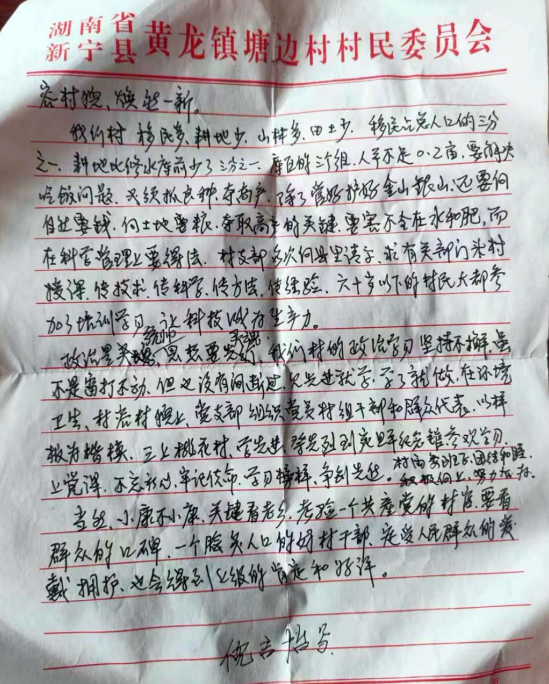 湖南省
新宁县 黄龙镇塘边村村民委员会
容村貌,焕然一新。
我们村 移民多、耕地少,山林多、田土少。移民占总人口的三分
之一,耕地比修水库前少了三分之一,库区的三个组,人平不足0.2亩,要解决
吃饭问题,必须抓良种,夺高产,除了管好护好金山银山,还要向
自然要钱,向土地要粮,夺取高产的关键,要害不全在水和肥,而
在科学管理上要得法。村支部多次向县里请示,求有关部门来村
授课,传技术、传科学、传方法、传经验。六十岁以下的村民大都参
加了培训学习,让科技成为生产力。
政治是统帅,思想要先行,我们村的政治学习坚持不懈,虽
不是雷打不动,但也没有间断过,文先进就学,学了就做,在环境
卫生、村容村貌上,党支部组织党员村组干部和群众代表,以
板为楷模,三上桃花村,学先进,参观学习,
上党课,不忘初心,牢记使命,学习榜样,争创先进。村两委班子团结和睦
积极向上,努力
当然,小康不小康,关键看老乡,考验一个共产党的村官,要看
群众的口碑,一个脸人口的好村干部,定受人民群众的爱
戴拥护,也会得到上级的肯定和好评。
倪吉